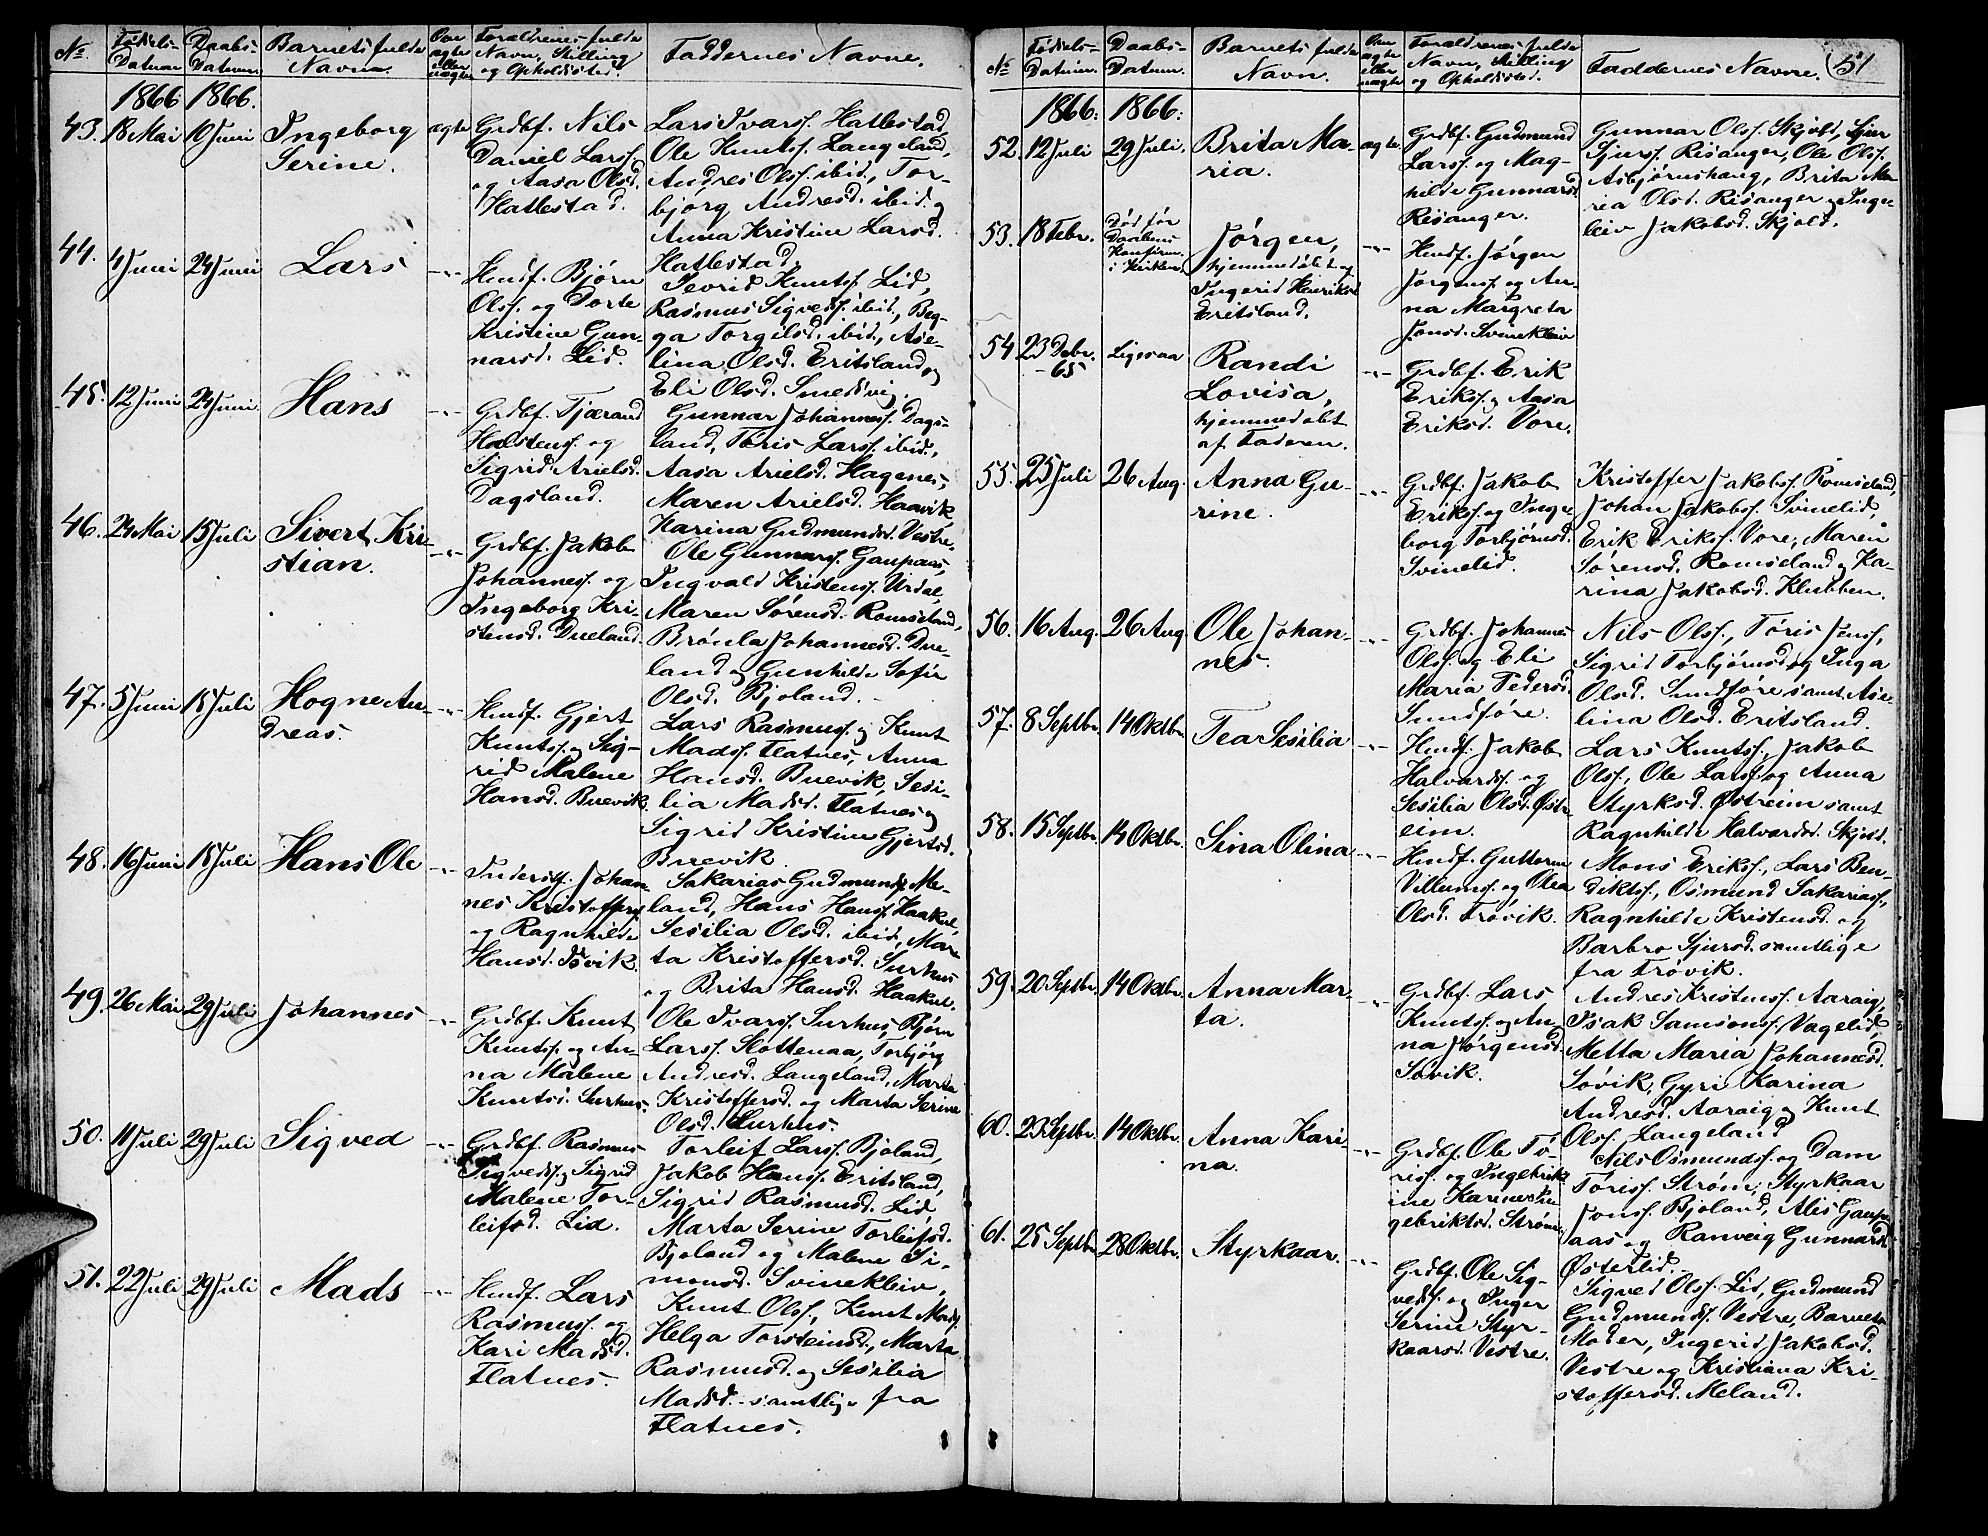 No.
Fødsels-
Datum
Daabs-
Datum
Barnets fulde
Navn.
Om
ægte
eller
uægte
Forældrenes fulde
Navn, Stilling
og Opholdssted.
Faddernes Navne.
1866 1866.
43. 18 Mai 10 Juni
Ingeborg
Serine.
ægte
Grdbf. Nils
Daniel Larss.
og Aasa Olsd.
Hatlestad.
Lars Ivarss. Hatlestad,
Ole Knutss. Langeland,
Andres Olss. ibid., Tor-
bjørg Andresd. ibid. og
Anna Kristine Larsd.
Hatlestad.
44. 4 Juni 24 Juni
Lars
-"-
Husf. Bjørn
Olss. og Dorte
Kristine Gun-
narsd. Lid.
Sevrid Knutss. Lid,
Rasmus Sigvedss. ibid., Beg-
ga Torgilsd. ibid., Ase-
lina Olsd. Eritsland og
Eli Olsd. Smedsvig.
45. 12 Juni 24 Juni
Hans
-"-
Grdbf. Tjærand
Halstenss. og
Sigrid Arielsd.
Dagsland.
Gunnar Johanness. Dags-
land, Tøris Larss. ibid.,
Aasa Arielsd. Hagenes,
Maren Arielsd. Haavik
Karina Gudmundsd. Vestre.
46. 24 Mai 15 Juli
Sivert Kri-
stian.
-"-
Grdbf. Jakob
Johanness. og
Ingeborg Kri-
stensd. Dueland.
Ole Gunnarss. Gaupaas,
Ingvald Kristenss. Urdal,
Maren Sørensd. Romseland,
Brønla Johannesd. Due-
land og Gunhilde Sofie
Olsd. Bjoland.
47. 5 Juni 15 Juli
Hogne An-
dreas.
-"-
Husf. Gjert
Knutss. og Sig-
rid Malene
Hansd. Buevik.
Lars Rasmuss. og Knut
Madss. Flatnes, Anna
Hansd. Buevik, Sesi-
lia Madsd. Flatnes og
Sigrid Kristine Gjertsd.
Buevik.
48. 16 Juni 15 Juli
Hans Ole
-"-
Inderst Johan-
nes Kristofferss.
og Ragnhilde
Hansd. Søvik.
Sakarias Gudmundss. Me-
land, Hans Hanss. Haakul,
Sesilia Olsd. ibid., Mare-
ta Kristoffersd. Surhus
og Brita Hansd. Haakul.
49. 26 Mai 29 Juli
Johannes
-"-
Grdbf. Knut
Knutss. og An-
na Malene
Knutsd. Surhus.
Ole Ivarss. Surhus, Bjørn
Larss. Slottenaa, Torbjørg
Andresd. Langeland, Marta
Kristoffersd. og Marta Serine
Olsd. Surhus.
50. 11 Juli 29 Juli
Sigved
-"-
Grdbf. Rasmus
Sigvedss. og Sigrid
Malene Tor-
leifsd. Lid.
Torleif Larss. Bjoland,
Jakob Hanss. Eritsland,
Sigrid Rasmusd. Lid
Marta Serine Torleifsd.
Bjoland og Malene Si-
monsd. Svinekleiv.
51. 22 Juli 29 Juli
Mads
-"-
Husf. Lars
Rasmuss. og
Kari Madsd.
Flatnes.
Knut Olss., Knut Madss.
Helga Torsteinsd., Marta
Rasmusd. og Sesilia
Madsd. samtlige fra
Flatnes.
No.
Fødsels-
Datum.
Daabs-
Datum.
Barnets fulde
Navn.
Om
ægte
eller
uægte
Forældrenes fulde
Navn, Stilling
og Opholdssted.
Faddernes Navne.
51
1866. 1866.
52. 12 Juli 29 Juli.
Brita Ma-
ria.
ægte.
Grdbf. Gudmund
Larss. og Mag-
hilde Gunnarsd.
Risanger.
Gunnar Olss. Skjold, Sjur
Sjurss. Risanger, Ole Olss.
Asbjørnshaug, Brita Ma-
ria Olsd. Risanger og Inge-
leiv Jakobsd. Skjold.
53. 18 Febr.
Død før
Daabens
Konfirm.
i Kirken.
Jørgen,
hjemmedøbt af
Ingerid Henriksd.
Eritsland.
-"-
Husf. Jørgen
Jørgenss. og An-
na Margreta
Jonsd. Svinekleiv
54 23 Debr.
-65
Ligesaa
Randi
Lovisa,
hjemmedøbt
af Faderen.
-"-
Grdbf. Erik
Erikss. og Aasa
Eriksd. Vore.
55. 25 Juli 26 Aug.
Anna Gu-
rine.
-"-
Grdbf. Jakob
Erikss. og Inge-
borg Torbjørnsd.
Svinelid.
Kristoffer Jakobss. Romseland,
Johan Jakobss. Svinelid,
Erik Erikss. Vore, Maren
Sørensd. Romseland og Ka-
rina Jakobsd. Klubben.
56. 16 Aug. 26 Aug
Ole Johan-
nes.
-"-
Grdbf. Johannes
Olss. og Eli
Maria Pedersd.
Sundføre.
Nils Olss., Tøris Jenss,
Sigrid Torbjørnsd. og Inga
Olsd. Sundføre samt Ase-
lina Olsd. Eritsland.
57. 8 Septbr. 14 Oktbr.
Tea Sesilia
-"-
Husf. Jakob
Halvardss. og
Sesilia Olsd. Østre-
eim.
Lars Knutss., Jakob
Olss., Ole Larss. og Anna
Styrksd. Østreim samt
Ragnhilde Halvardsd. Skjold.
58. 15 Septbr. 14 Oktbr.
Sina Olina
-"-
Husf. Guttorm
Villumss. og Olea
Olsd. Trøvik.
Mons Erikss., Lars Ben-
diktss., Osmund Sakariass.,
Ragnhilde Kristensd. og
Barbro Sjursd. samtlige
fra Trøvik.
59. 20 Septbr. 14 Oktbr.
Anna Mar-
ta.
-"-
Grdbf. Lars
Knutss. og An-
na Jørgensd.
Søvik.
Andres Kristenss. Aaraig,
Isak Samsonss. Vagelid,
Metta Maria Johannesd.
Søvik, Gyri Karina
Andresd. Aaraig og Knut
Olss. Langeland
60. 23 Septbr. 14 Oktbr.
Anna Kari-
na.
-"-
Grdbf. Ole Tø-
riss. og Ingebrik-
ine Karine In-
gebriktsd. Strøm.
Nils Osmundss. og Dam
Tøriss. Strøm, Styrkaar
Jonss. Bjoland, Alis Gaup-
aas og Ranveig Gunnarsd.
Østerlid.
61. 25 Septbr. 28 Oktbr.
Styrkaar.
-"-
Grdbf. Ole Sig-
vedss. og Inger
Serine Styr-
kaarsd. Vestre.
Sigved Olss. Lid, Gudmund
Gudmundss. Vestre, Barnets
Moder, Ingerid Jakobsd.
Vestre og Kristiana Kri-
stoffersd. Meland.